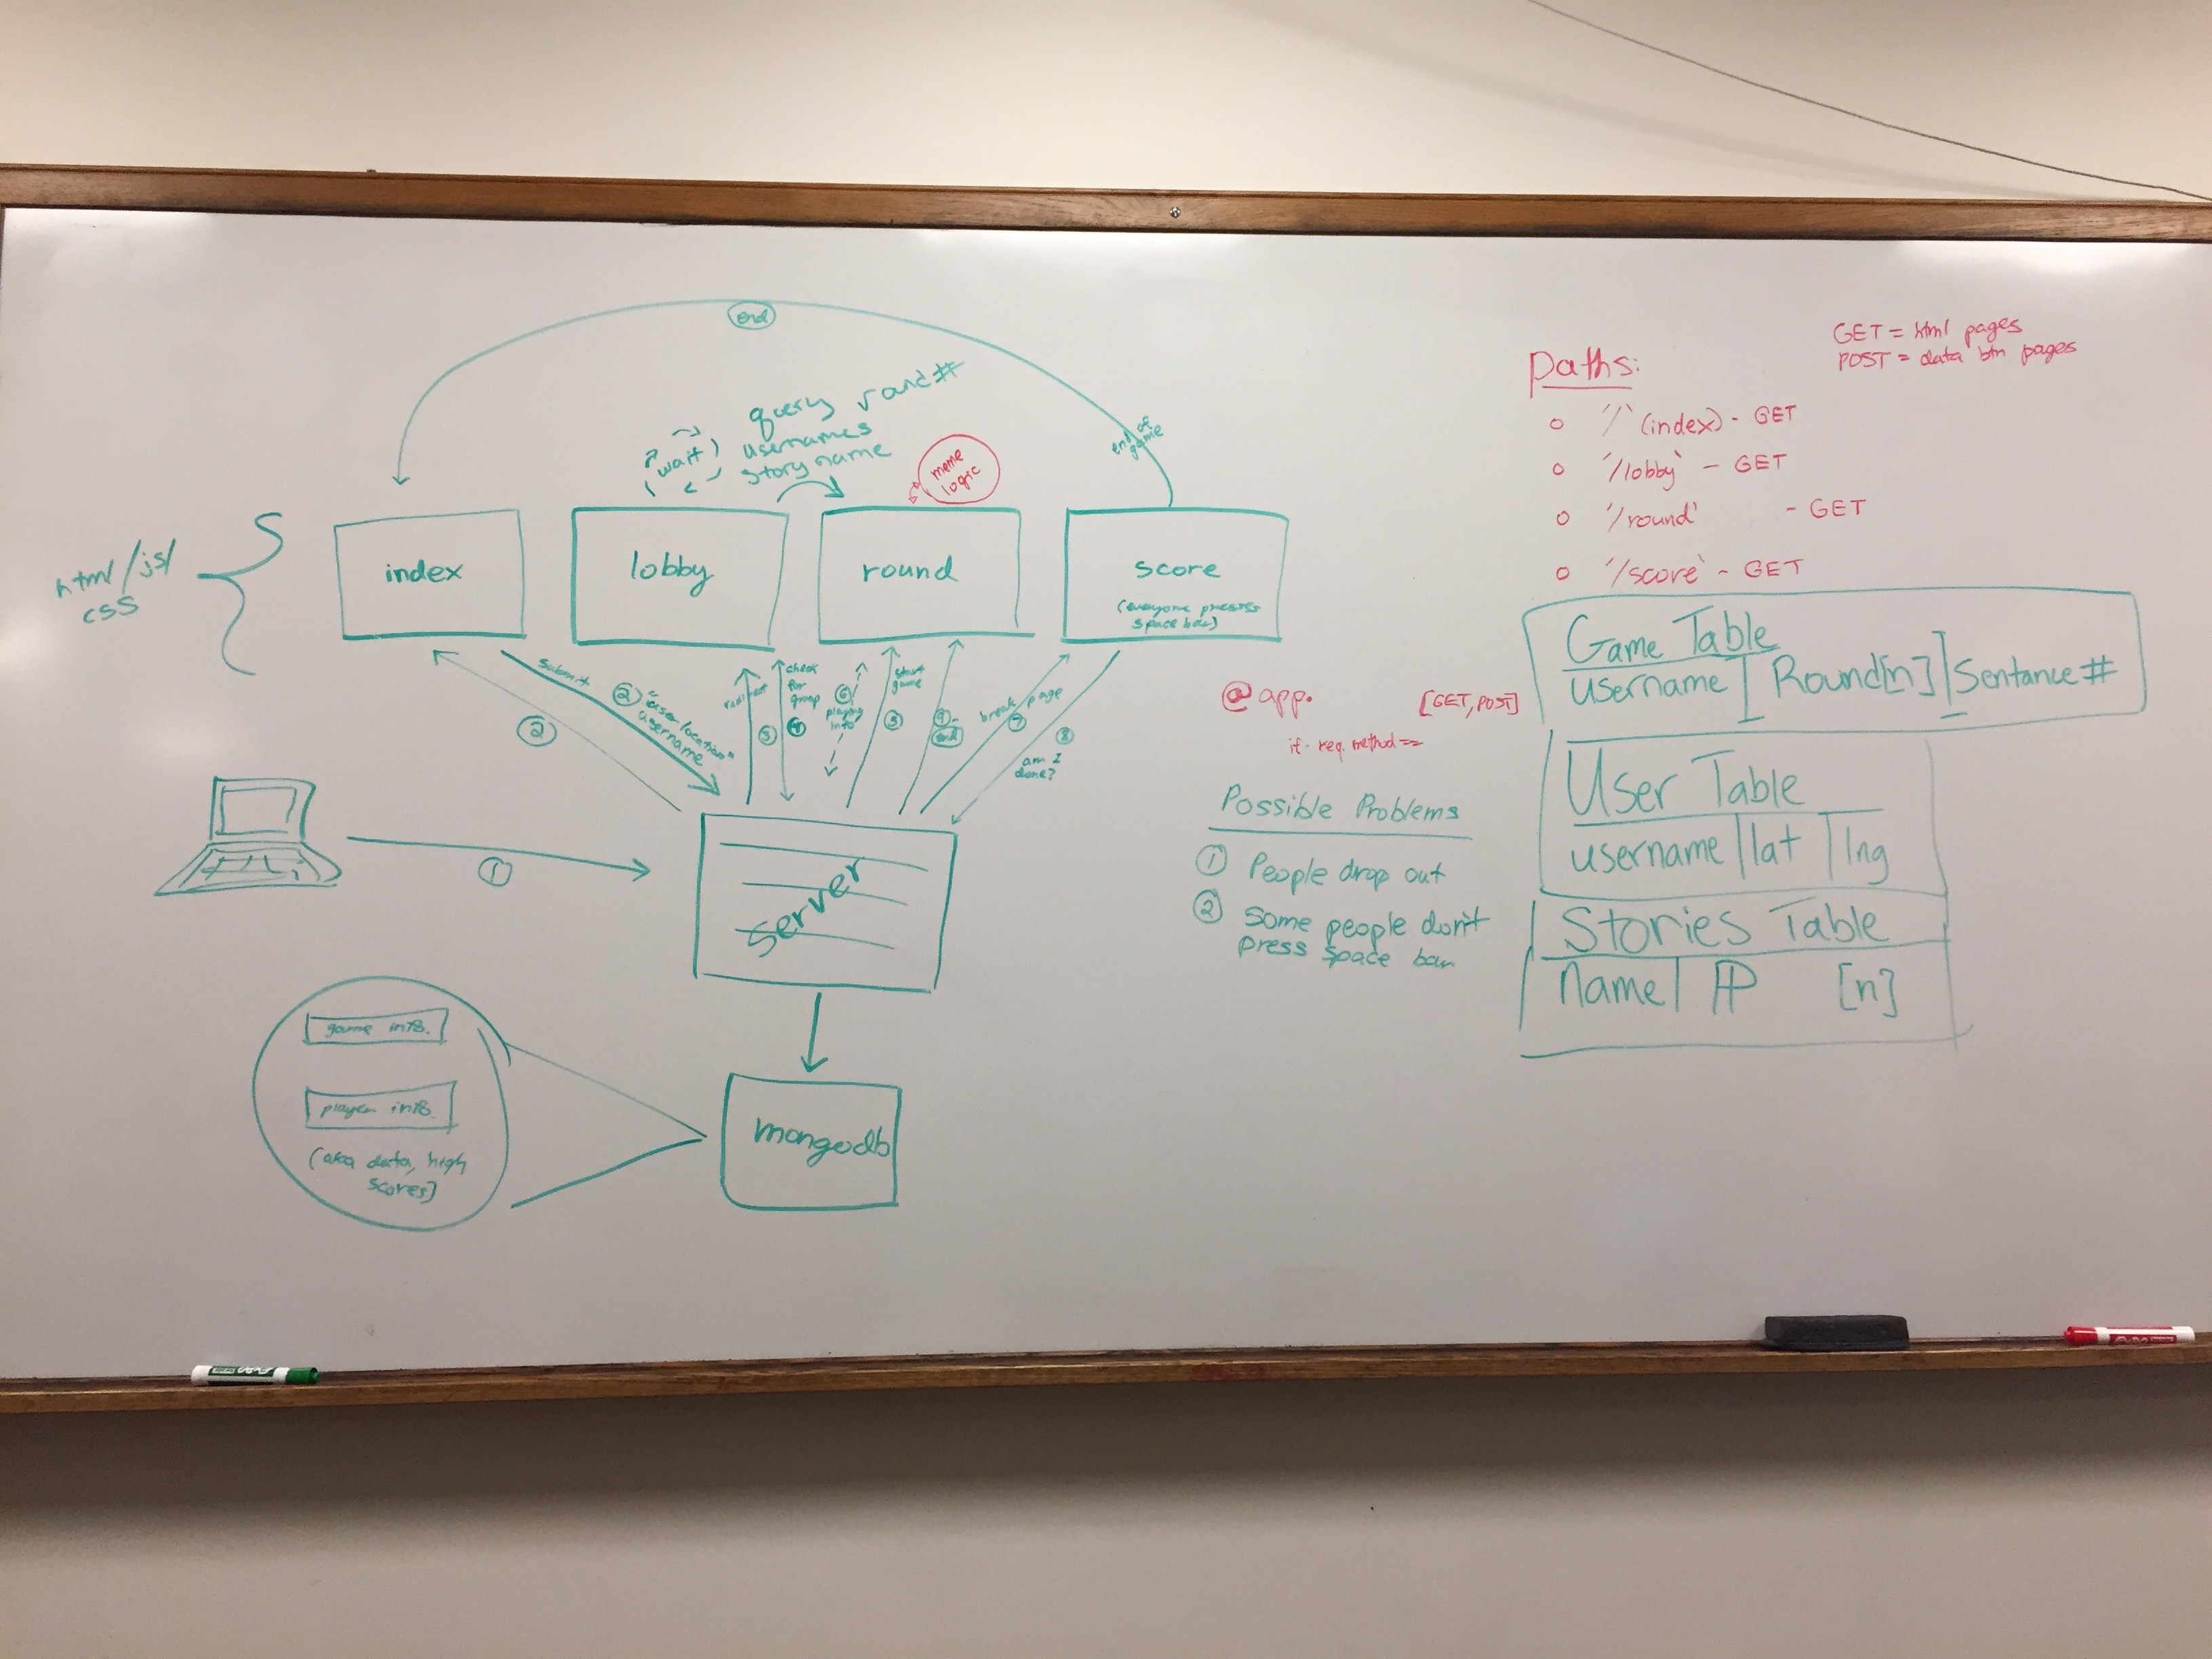 end
query round#
usernames
story name
wait
meme
logic
end of
game
html/js/
css
index
lobby
round
score
(everyone presses
space bar)
submit
② "user location"
username
②
redirect
③
check
for
group
④
⑥
playing
info
start
game
⑤
⑨
end
break page
⑦
⑧
am I
done?
①
server
mongodb
game info.
player info.
(aka data, high
scores)
GET = html pages
POST = data btn pages
Paths:
'/' (index) - GET
'/lobby' - GET
'/round' - GET
'/score' - GET
@app. [GET, POST]
if req. method ==
Possible Problems
① People drop out
② Some people don't
press space bar
Game Table
username | Round[n] | Sentance #
User Table
username | lat | lng
Stories Table
Name | [n]